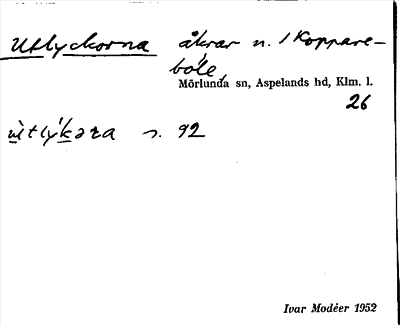 Utlyckorna åkrar n. / Koppare-
böle,
Mörlunda sn, Aspelands hd, Klm. l.
26
ùtlýkəra s. 92
Ivar Modéer 1952